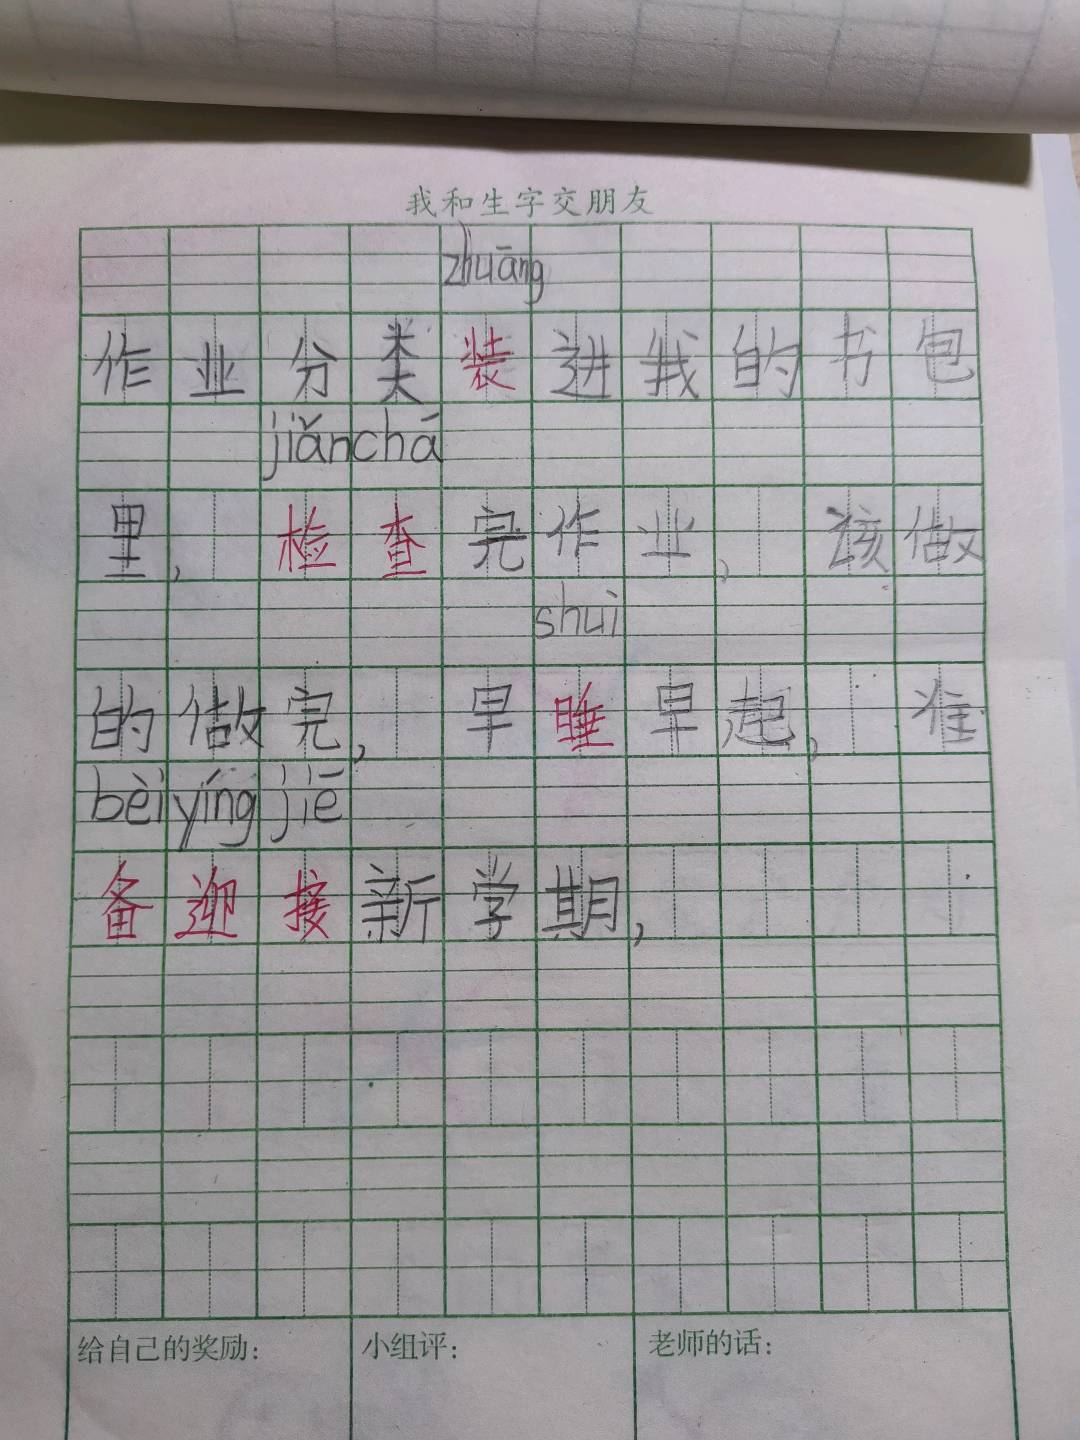 我和生字交朋友
zhuāng
作业分类装进我的书包
jiǎnchá
里,检查完作业,该做
shuì
的做完,早睡早起,准
bèiyíngjiē
备迎接新学期,
给自己的奖励: 小组评: 老师的话: